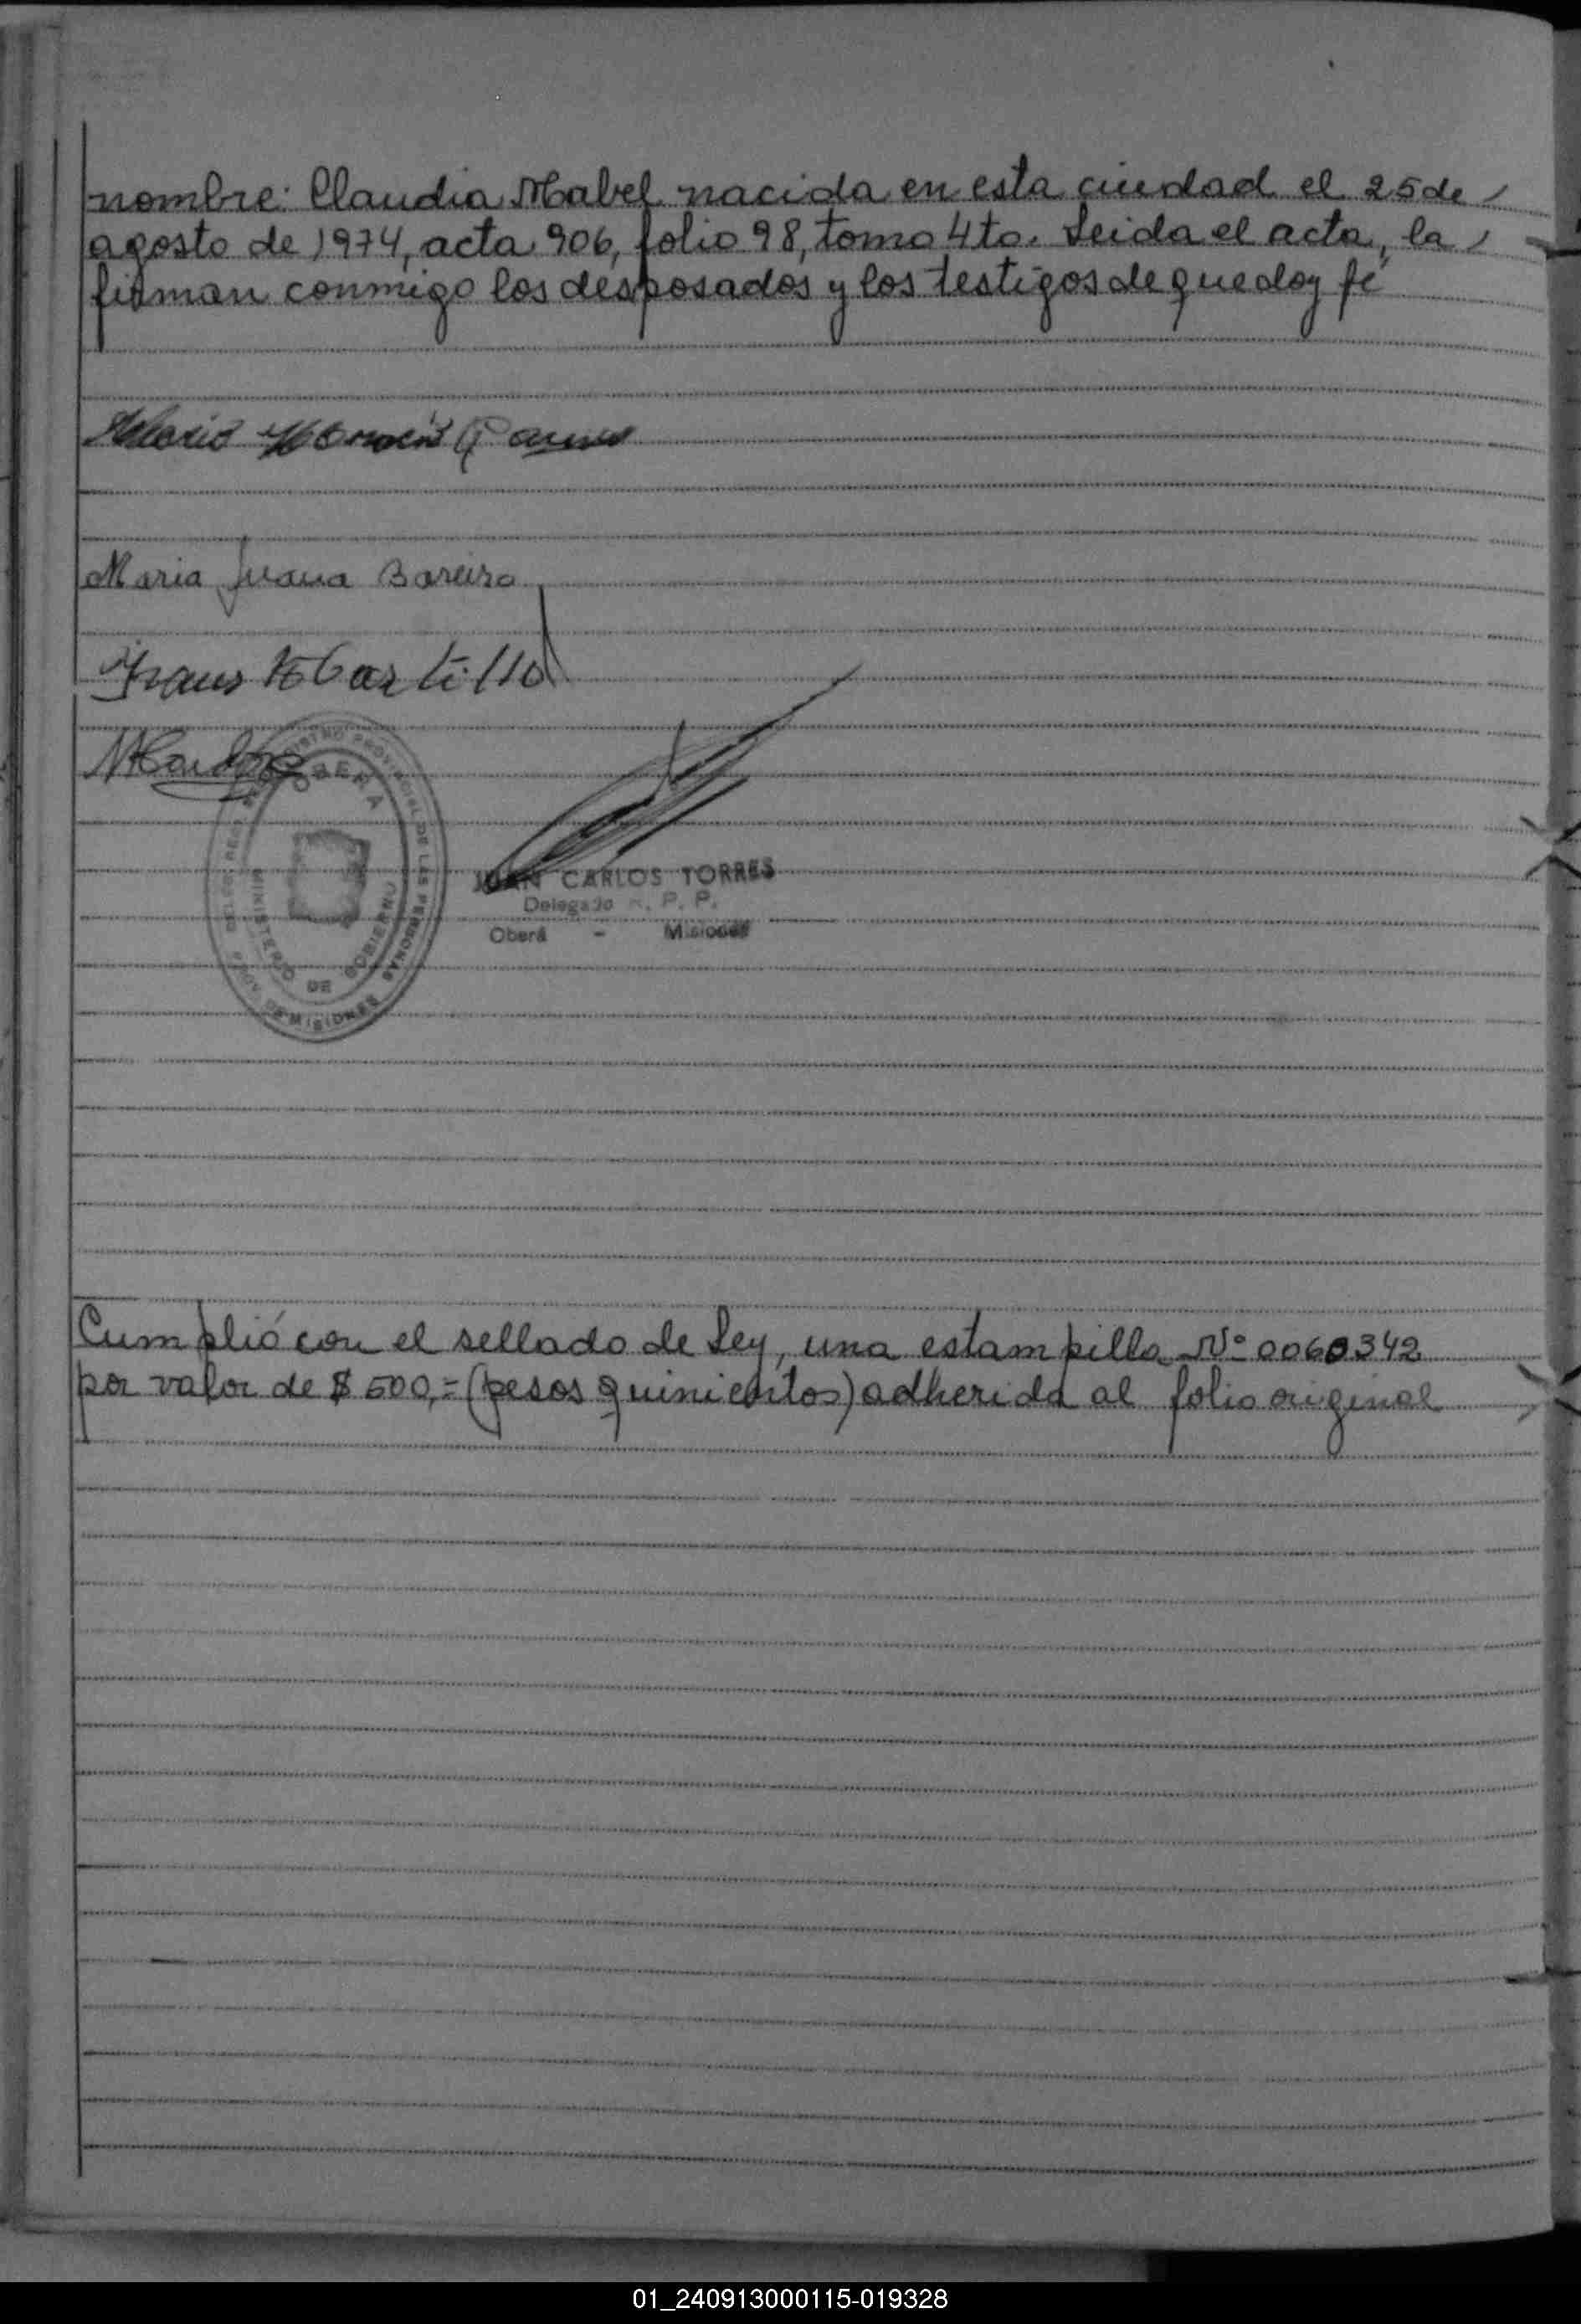 nombre: Claudia Mabel nacida en esta ciudad el 25 de /
agosto de 1974, acta 906, folio 98, tomo 4to. Leida el acta, la /
firman conmigo los desposados y los testigos de que doy fé
Maria Juana Bareiro
OBERA
REGISTRO PROVINCIAL DE LAS PERSONAS
MINISTERIO DE GOBIERNO
PROV. DE MISIONES
JUAN CARLOS TORRES
Delegado R. P. P.
Oberá - Misiones
Cumplió con el sellado de Ley, una estampilla Nº 0060342
por valor de $ 500,= (pesos quinientos) adherida al folio original
01_240913000115-019328